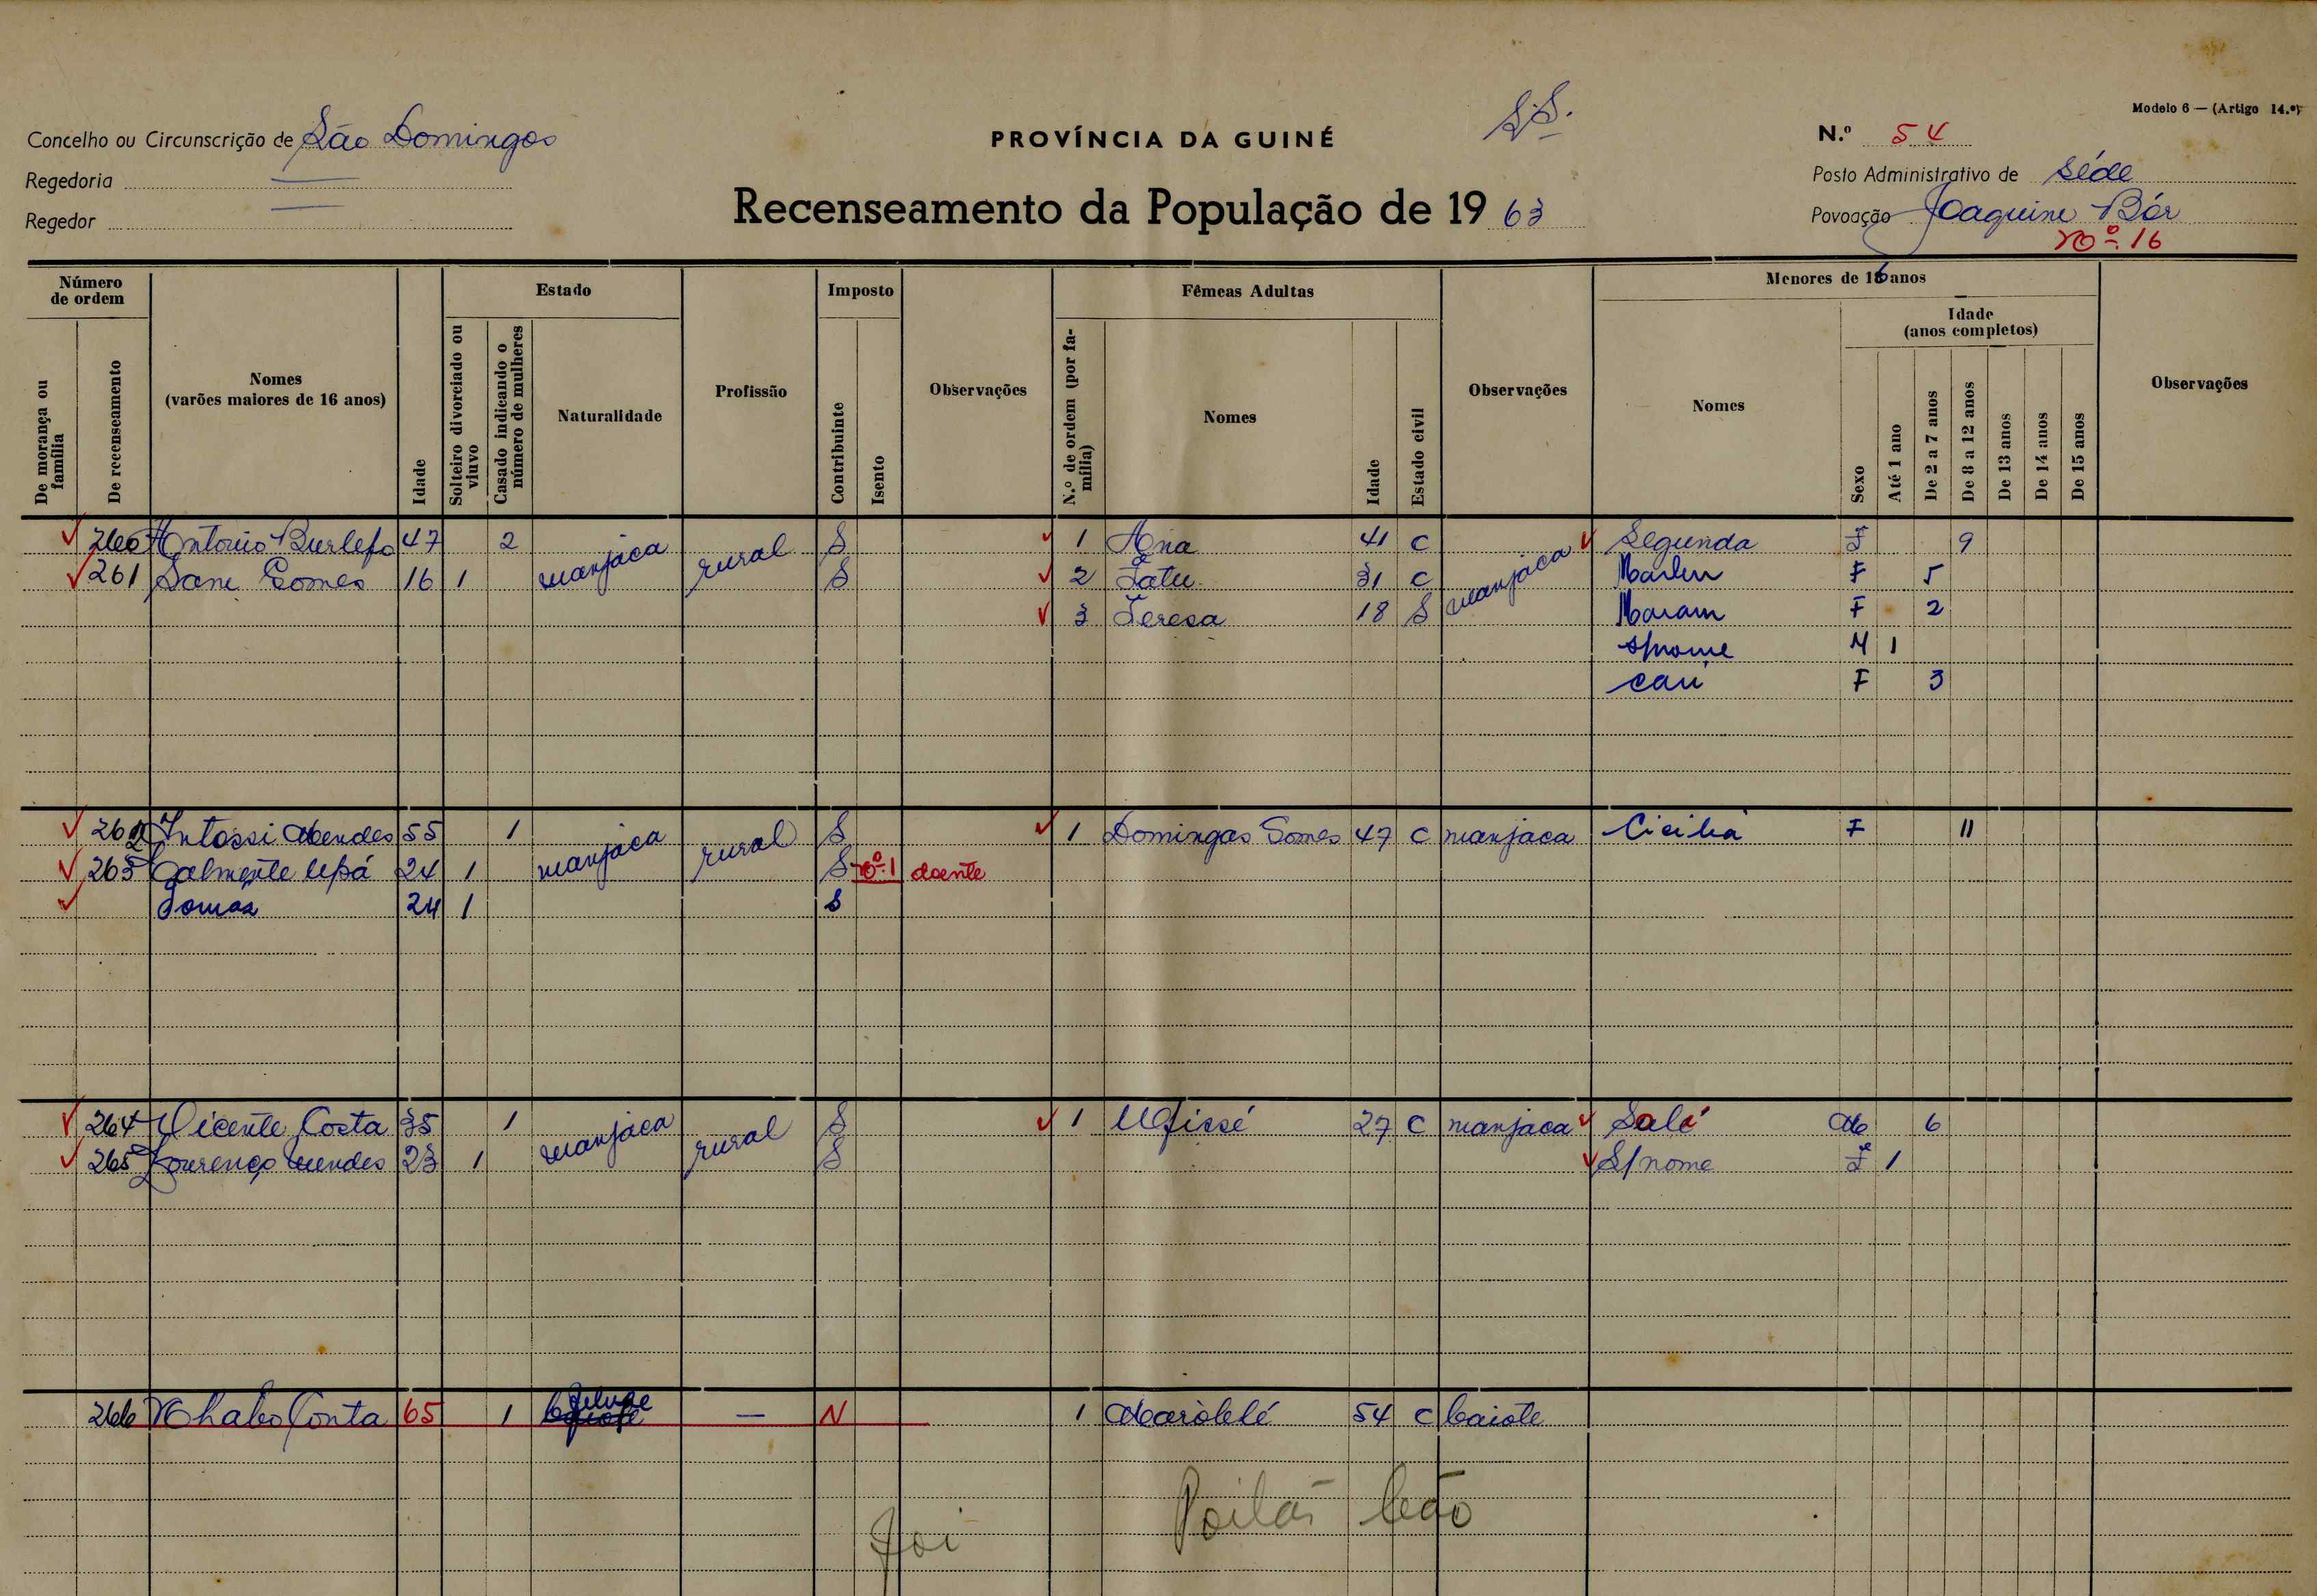 Modelo 6 — (Artigo 14.º)
S.S.
Concelho ou Circunscrição de São Domingos
PROVÍNCIA DA GUINÉ
N.º 54
Regedoria —
Posto Administrativo de Séde
Regedor —
Recenseamento da População de 1963
Povoação Joaquim Bór
Nº 16
Número de ordem
Estado
Imposto
Fêmeas Adultas
Menores de 16 anos
Idade (anos completos)
De morança ou família
De recenseamento
Nomes (varões maiores de 16 anos)
Idade
Solteiro divorciado ou viuvo
Casado indicando o número de mulheres
Naturalidade
Profissão
Contribuinte
Isento
Observações
N.º de ordem (por família)
Nomes
Idade
Estado civil
Observações
Nomes
Sexo
Até 1 ano
De 2 a 7 anos
De 8 a 12 anos
De 13 anos
De 14 anos
De 15 anos
Observações
260 Antonio Burlefo 47 2 manjaca rural S 1 Ana 41 C manjaca Segunda F 9
261 Sane Gomes 16 1 S 2 Fatu 31 C Marlen F 5
3 Teresa 18 S Maram F 2
S/nome M 1
Cau F 3
262 Intossi Mendes 55 1 manjaca rural S 1 Domingas Gomes 47 C manjaca Cicilia F 11
263 24 1 S Nº 1 doente
Tomas 24 1 S
264 Vicente Costa 35 1 manjaca rural S 1 27 C manjaca Salé M 6
265 Lourenço Mendes 23 1 S S/nome F 1
266 Nhabo Conta 65 1 Felupe — N 1 54 C baiote
Foi Poilão Leão